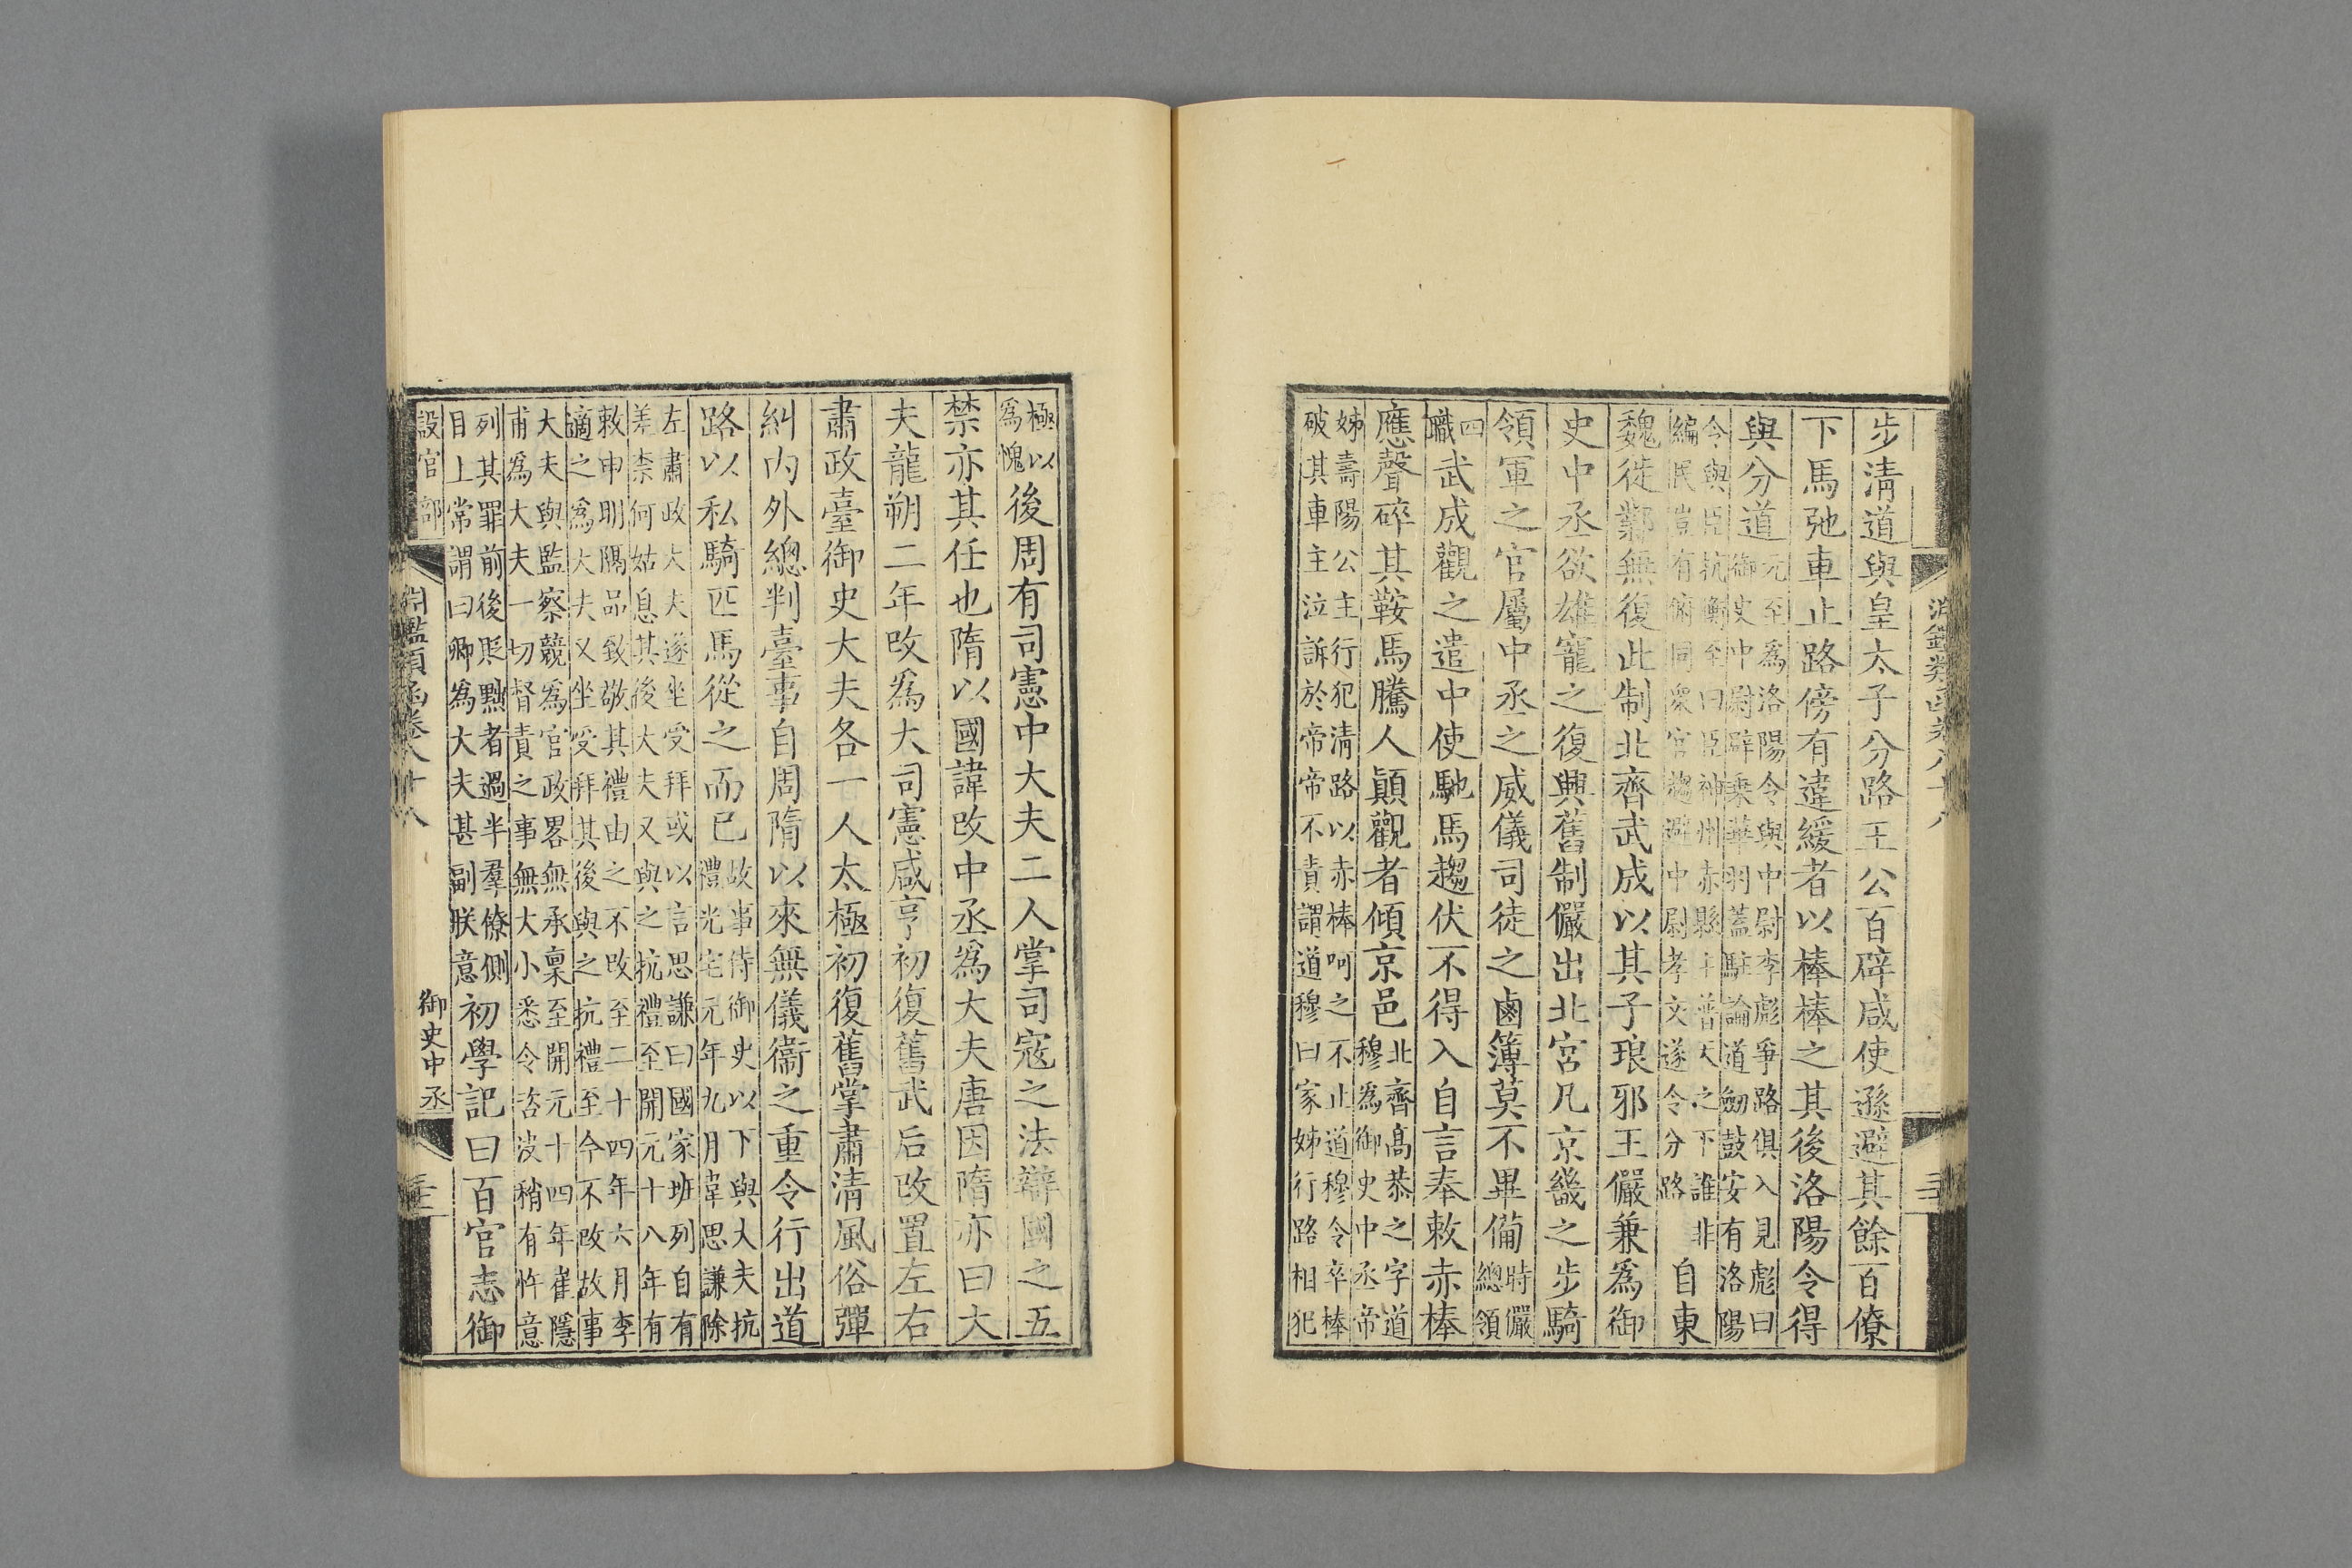 步清道與皇太子分路王公百辟咸使遜避其餘百僚
下馬弛車止路傍有違緩者以棒棒之其後洛陽令得
與分道元至爲洛陽令與中尉李彪爭路俱入見彪曰御史中尉辟乘華羽蓋駐論道劒鼓安有洛陽
令與臣抗衡至曰臣神州赤縣主普天之下誰非編民豈有俯同衆官趨避中尉孝文遂令分路自東
魏徙鄴無復此制北齊武成以其子琅邪王儼兼爲御
史中丞欲雄寵之復興舊制儼出北宮凡京畿之步騎
領軍之官屬中丞之威儀司徒之鹵簿莫不畢備時儼總領
四職武成觀之遣中使馳馬趨伏不得入自言奉敕赤棒
應聲碎其鞍馬騰人顛觀者傾京邑北齊高恭之字道穆爲御史中丞帝
姊壽陽公主行犯清路以赤棒呵之不止道穆令卒棒破其車主泣訴於帝帝不責謂道穆曰家姊行路相犯
極以爲愧後周有司憲中大夫二人掌司寇之法辯國之五
禁亦其任也隋以國諱改中丞爲大夫唐因隋亦曰大
夫龍朔二年改爲大司憲咸亨初復舊武后改置左右
肅政臺御史大夫各一人太極初復舊掌肅清風俗彈
糾內外總判臺事自周隋以來無儀衞之重令行出道
路以私騎匹馬從之而已故事侍御史以下與大夫抗禮光宅元年九月韋思謙除
左肅政大夫遂坐受拜或以言思謙曰國家班列自有差柰何姑息其後大夫又與之抗禮至開元十八年有
敕申明隔品致敬其禮由之不改至二十四年六月李適之爲大夫又坐受拜其後與之抗禮至今不改故事
大夫與監察競爲官政畧無承稟至開元十四年崔隱甫爲大夫一切督責之事無大小悉令咨決稍有忤意
列其罪前後貶黜者過半羣僚側目上常謂曰卿爲大夫甚副朕意初學記曰百官志御
設官部
淵鑑類函卷八十八
御史中丞